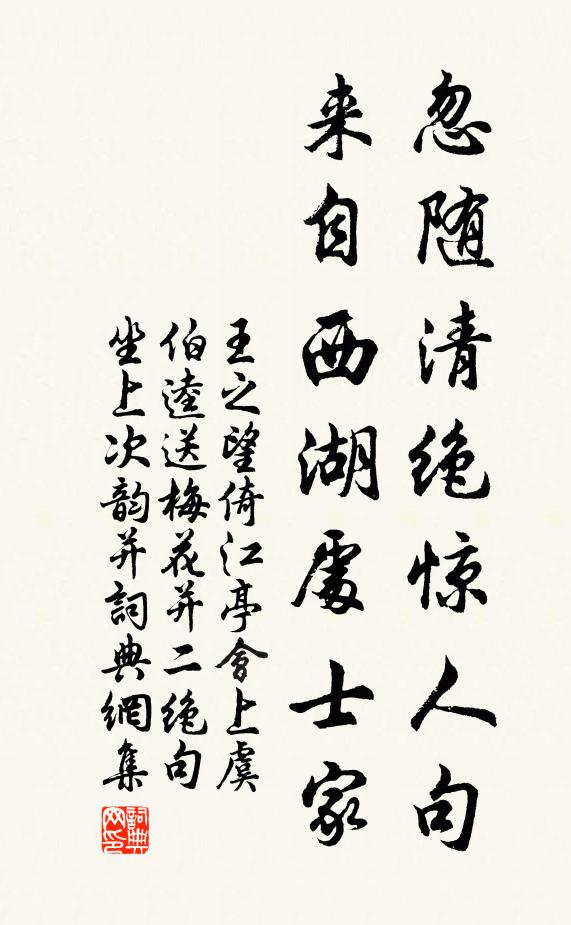 忽随清绝惊人句
来自西湖處士家
王之望倚江亭會上虞
伯逵送梅花并二絶句
坐上次韵并詞典網集
詞典网印